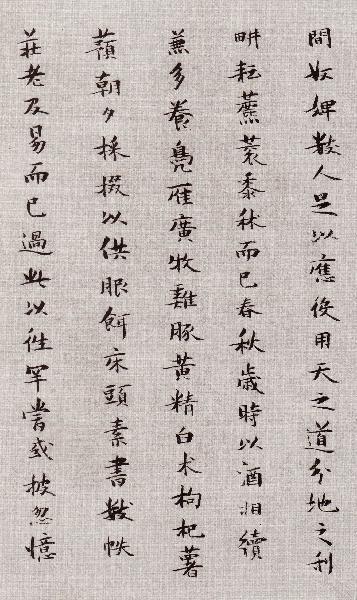 間奴婢數人足以應役用天之道分地之利
耕耘藨蓘黍秫而已春秋歲時以酒相續
兼多養鳧雁廣牧雞豚黃精白术枸杞薯
蕷朝夕採掇以供服餌床頭素書數帙
莊老及易而已過此以往罕嘗或披忽憶